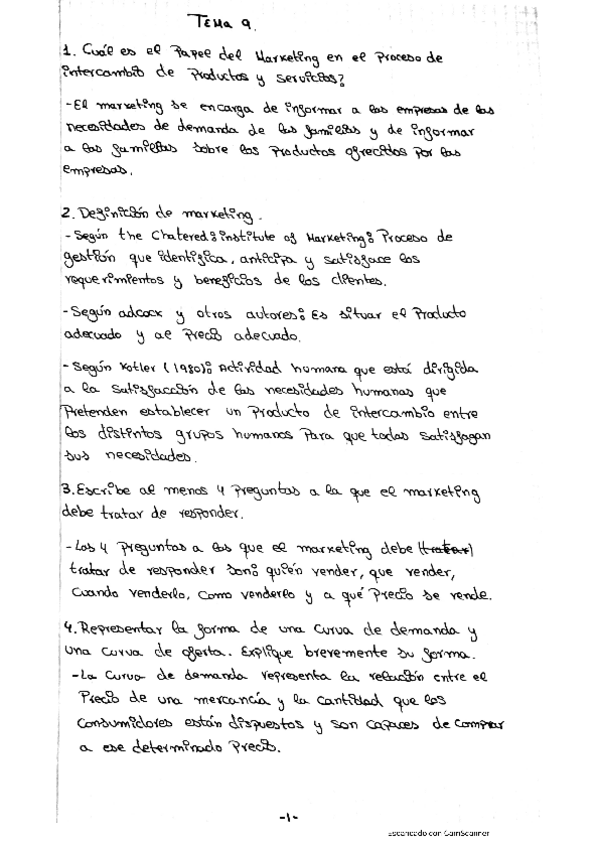 Tema 9.
1. Cuál es el Papel del Marketing en el Proceso de
intercambio de Productos y servicios?
- El marketing se encarga de informar a las empresas de las
necesidades de demanda de las familias y de informar
a las familias sobre los Productos ofrecidos por las
empresas.
2. Definición de marketing.
- Según the Chatered institute of Marketing: Proceso de
gestión que identifica, anticipa y satisface los
requerimientos y beneficios de los clientes.
- Según adcock y otros autores: Es situar el Producto
adecuado y al Precio adecuado.
- Según Kotler (1980): Actividad humana que está dirigida
a la satisfacción de las necesidades humanas que
Pretenden establecer un Producto de intercambio entre
los distintos grupos humanos Para que todas satisfagan
sus necesidades.
3. Escribe al menos 4 Preguntas a la que el marketing
debe tratar de responder.
- Las 4 Preguntas a las que el marketing debe (tratar)
tratar de responder son: quién vender, que vender,
Cuando venderlo, como venderlo y a qué Precio se vende.
4. Representar la forma de una curva de demanda y
una curva de oferta. Explique brevemente su forma.
- La Curva de demanda representa la relación entre el
Precio de una mercancía y la cantidad que los
Consumidores están dispuestos y son capaces de comprar
a ese determinado Precio.
-1-
Escaneado con CamScanner